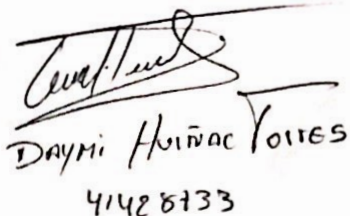 DAYMI HUIÑAC TORRES
41428733